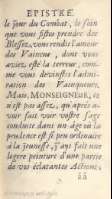 EPISTRE
le jour du Combat, le soin
que vous pristes prendre des
Blessez, vous rendit l'amour
des Vaincus, dont vous
aviez esté la terreur, comme
vous devinstes l'admiration
des Vainqueurs,
Mais, MONSEIGNEUR, ce
n'est pas assez, qu'aprés avoir
fait voir vostre sage
conduite dans un âge où la
prudence est si peu ordinaire
à la jeunesse, j'aye fait une
legere peinture d'une partie
de vos éclatantes actions;